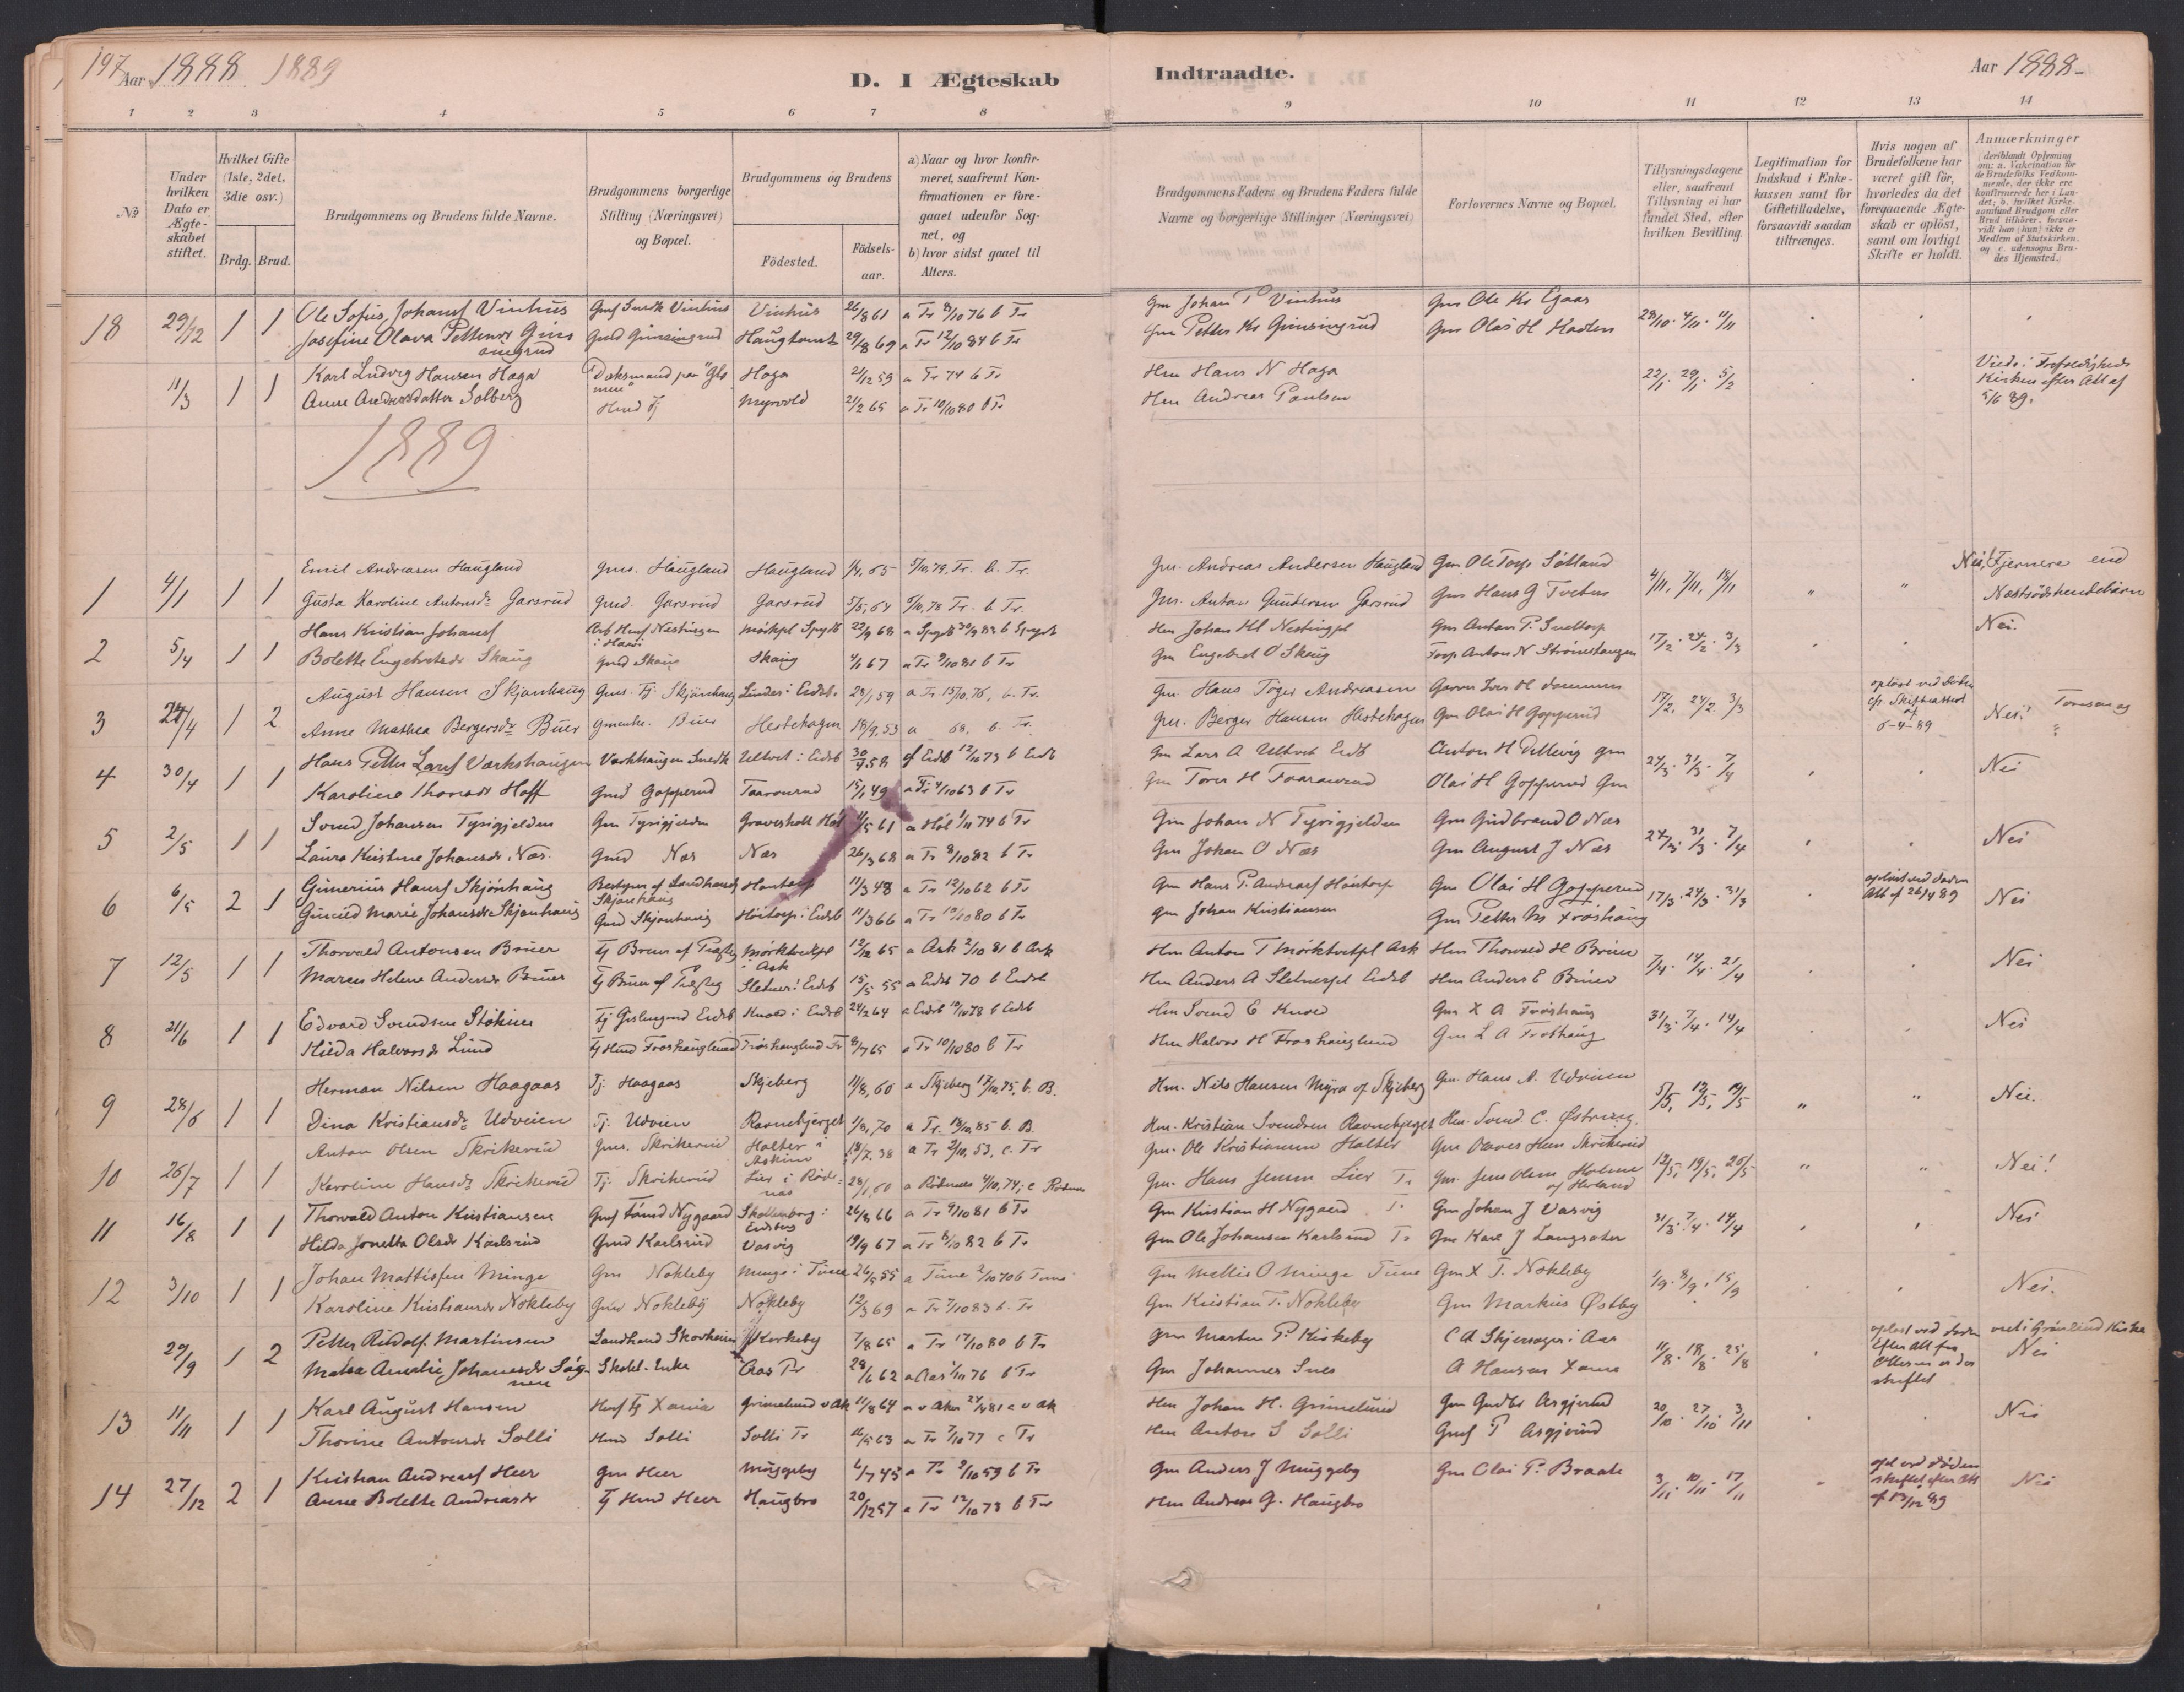 197 Aar 1888 1889
D. I Ægteskab
Indtraadte.
Aar 1888-
1 2 3 4 5 6 7 8 9 10 11 12 13 14
No
Under hvilken Dato er Ægteskabet stiftet.
Hvilket Gifte (1ste, 2det, 3die osv.)
Brdg. Brud.
Brudgommens og Brudens fulde Navne.
Brudgommens borgerlige Stilling (Næringsvei) og Bopæl.
Brudgommens og Brudens
Födested.
Födsels-aar.
a) Naar og hvor konfir-
meret, saafremt Kon-
firmationen er fore-
gaaet udenfor Sog-
net, og
b) hvor sidst gaaet til
Alters.
Brudgommens Faders og Brudens Faders fulde
Navne og borgerlige Stillinger (Næringsvei)
Forlovernes Navne og Bopæl.
Tillysningsdagene
eller, saafremt
Tillysning ei har
fundet Sted, efter
hvilken Bevilling.
Legitimation for
Indskud i Enke-
kassen samt for
Giftetilladelse,
forsaavidt saadan
tiltrænges.
Hvis nogen af
Brudefolkene har
været gift för,
hvorledes da det
foregaaende Ægte-
skab er oplöst,
samt om lovligt
Skifte er holdt.
Anmærkninger
(deriblandt Oplysning
om: a. Vakcination for
de Brudefolks Vedkom-
mende, der ikke ere
konfirmerede her i Lan-
det; b. hvilket Kirke-
samfund Brudgom eller
Brud tilhörer, forsaa-
vidt han (hun) ikke er
Medlem af Statskirken.
og c. udensogns Bru-
des Hjemsted.)
18 29/12 1 1 Ole Sofus Johansf Vinhus Vinhus 26/8 61 a Tr 8/10 76 b Tr Gm Johan P Vinhus Gm Ole Kr Egaas 28/10. 4/11. 11/11
Josefine Olava Pettersdr Gimsingrud Gmd Gimsingrud Haugtomt 29/8 69 a Tr 12/10 84 b Tr Gm Petter Kr Gimsingrud Gm Olas H
11/3 1 1 Karl Ludvig Hansen Haga Haga 21/12 59 a Tr 74 b Tr Hm Hans N Haga 22/1. 29/1. 5/2
Anne Andreasdatter Solberg Hmd Tj Myrvold 21/2 65 a Tr 10/10 80 b Tr Hm Andreas Paulsen
Kirken efter Att af
1889
1 4/1 1 1 Emil Andreasen Haugland Gms. Haugland Haugland 1/4, 65 5/10, 79, Tr. b. Tr. Gm. Andreas Andersen Haugland Gm Ole Torp Sötland 4/11, 7/11, 18/11 Nei, Fjernere end
Gusta Karoline Antonsdr Garsrud Gmd. Garsrud Garsrud 5/5, 64 6/10, 78 Tr. b. Tr. Gm. Anton Gundersen Garsrud Gm Hans G Tveten Næstsödskendebarn
2 5/4 1 1 Hans Kristian Johansf Mörkpl Spydb 22/9 68 a Spydb 30/9 83 b Spydb Hm Johan Kl Nestingpl Gm Anton P. 17/2. 24/2. 3/3 Nei.
Bolette Engebretsdr Skaug Gmd Skaug Skaug 4/1 67 a Tr 9/10 81 b Tr Gm Engebret O Skaug Anton N Strömstangen
3 24/4 1 2 August Hansen Skjönhaug Gms. Tj. Skjönhaug Linder i Eidsb. 28/1, 59 a Tr. 15/10, 76, b. Tr. Gm. Hans Töger Andreasen 17/2. 24/2. 3/3 Nei!
Anne Mathea Bergersdr Buer Gmenke. Buer Hestehagen 18/9, 53 a 68, b. Tr. Gm. Berger Hansen Hestehagen Gm Olai H Gopperud 6-4-89
4 30/4 1 1 Hans Petter Larsf Værkshaugen Værkhaugen Smedk Ultvet i Eidsb 30/9 58 af Eidsb 12/10 73 b Eidsb Gm Lars A Ultvet Eidsb Anton H Dillevig gm 24/3. 31/3. 7/4 Nei
Karoline Thoresdr Hoff Gmd Gopperud Taaraurud 15/1 49 a Tr 4/10 63 b Tr Gm Torer H Taaraurud Olai H Gopperud Gm
5 2/5 1 1 Svend Johansen Tyrigjelden Gm Tyrigjelden 1/5 61 a Höl 1/11 74 b Tr Gm Johan N Tyrigjelden Gm Gudbrand O Næs 24/3. 31/3. 7/4 Nei
Laura Kristine Johansdr. Næs. Gmd Næs Næs 26/3 68 a Tr 8/10 82 b Tr Gm Johan O Næs Gm August J Næs
6 6/5 2 1 Gunerius Hansf Skjönhaug Bestyrer af Landhandl Skjönhaug Höntorp 11/3 48 a Tr 12/10 62 b Tr Gm Hans P. Andreasf Höntorp Gm Olai H Gopperud 17/3. 24/3. 31/3 oplöst ved döden Att af 26/4 89 Nei
Gunild Marie Johansdr Skjönhaug Gmd Skjönhaug Höitorp i Eidsb 11/3 66 a Tr 10/10 80 b Tr Gm Johan Kristiansen Gm Petter M Fröshaug
7 12/5 1 1 Thorvald Antonsen Bruer Ask 12/12 65 a Ask 2/10 81 b Ask Hm Anton T Mörktvetpl Ask Hm Thorvald H Bruer 7/4. 14/4. 21/4 Nei
Maren Helene Andersdr Bruer Sletner i Eidsb 15/5 55 a Eidsb 70 b Eidsb Hm Anders A Sletnerpl Eidsb Hm Anders E Bruer
8 21/6 1 1 Edvard Svendsen Stöknes Knold i Eidsb 24/2 64 a Eidsb 10/10 78 b Eidsb Hm Svend E Knold Gm K A Fröshaug 31/3. 7/4. 14/4 Nei
Hilda Halvorsdr Lund Tj Hmd Froshauglund Fröshauglund Tr 8/7 65 a Tr 10/10 80 b Tr Hm Halvor H Froshauglund Gm L A Froshaug
9 28/6 1 1 Herman Nilsen Haagaas Tj. Haagaas Skjeberg 11/8, 60 a Skjeberg 17/10, 75, b. B. Hm. Nils Hansen Myra af Skjeberg Gm. Hans A. Udveien 5/5, 12/5, 19/5 " " Nei.
Dina Kristiansdr Udveien Tj. Udveien Ravnebjerget 1/8, 70 a Tr. 18/10, 85 b. B. Hm. Kristian Svendsen Ravnebjerget Hm. Svend C. Østreng.
10 26/7 1 1 Anton Olsen Skrikerud Gms. Skrikerud Holter i Askim 18/7, 38 a Tr 2/10, 53, c. Tr Gm. Ole Kristiansen Holter Gm Skrikerud 12/5, 19/5, 26/5 " " Nei!
Karoline Hansdr Skrikerud Tj. Skrikerud Lier i Rödenæs 28/1, 60 a Rödenæs 4/10, 74, c Rödenæs Gm. Hans Jensen Lier Tr Gm. Jens Olsen Holme af Höland
11 16/8 1 1 Thorvald Anton Kristiansen Nygaard Skollenborg i Eidsberg 26/8 66 a Tr 9/10 81 b Tr Gm Kristian H Nygaard Tr Gm Johan J Vasvig 31/3. 7/4. 14/4 Nei
Hilda Jonetta Olsdr Karlsrud Gmd Karlsrud Vasvig 19/9 67 a Tr 8/10 82 b Tr Gm Ole Johansen Karlsrud Tr Gm Karl J Langsæter
12 3/10 1 1 Johan Mattissen Minge Gm Nökleby Minge i Tune 26/5 55 a Tune 2/10 70 b Tune Gm Mattis O Minge Tune Gm K T. Nökleby 1/9. 8/9. 15/9 Nei.
Karoline Kristiansdr Nökleby Gmd Nökleby Nökleby 12/3 69 a Tr 7/10 83 b. Tr Gm Kristian T. Nökleby Gm Markus Østby
29/9 1 2 Petter Rudolf Martinsen Landhand Skovheim Kirkeby 7/8 65 a Tr 17/10 80 b Tr Gm Martin P. Kirkeby C A Skjersager i Aas 11/8. 18/8. 25/8 oplöst ved döden viet i Grönland Kirke
Matea Amalie Johannesdr Enke Aas Tr 28/6 62 a Aas 1/11 76 b Tr Gm Johannes Snes A Hansen Nei
skiftet
13 11/11 1 1 Karl August Hansen Hmf Tj Xania Grimelund v Ak 11/8 64 a v Aker 24/4 81 c v Ak Hm Johan H. Grimelund Gm Gudbr Asgjerud 20/10. 27/10. 3/11 Nei
Thorine Antonsdr Solli Hmd Solli Solli Tr 63 a Tr 7/10 77 c Tr Hm Anton S Solli Gmf P Asgjerud
14 27/12 2 1 Kristian Andreasf Heer Gm Heer Muggeby 6/7 45 a Tr 2/10 59 b Tr Gm Anders J Muggeby Gm Olai P. Braate 3/11. 10/11. 17/11 opl ved döden skiftet efter Att af 13/12 89 Nei
Anne Bolette Andreasdr Tj Hmd Heer Haugbro 20/12 57 a Tr 12/10 73 b Tr Hm Andreas G. Haugbro